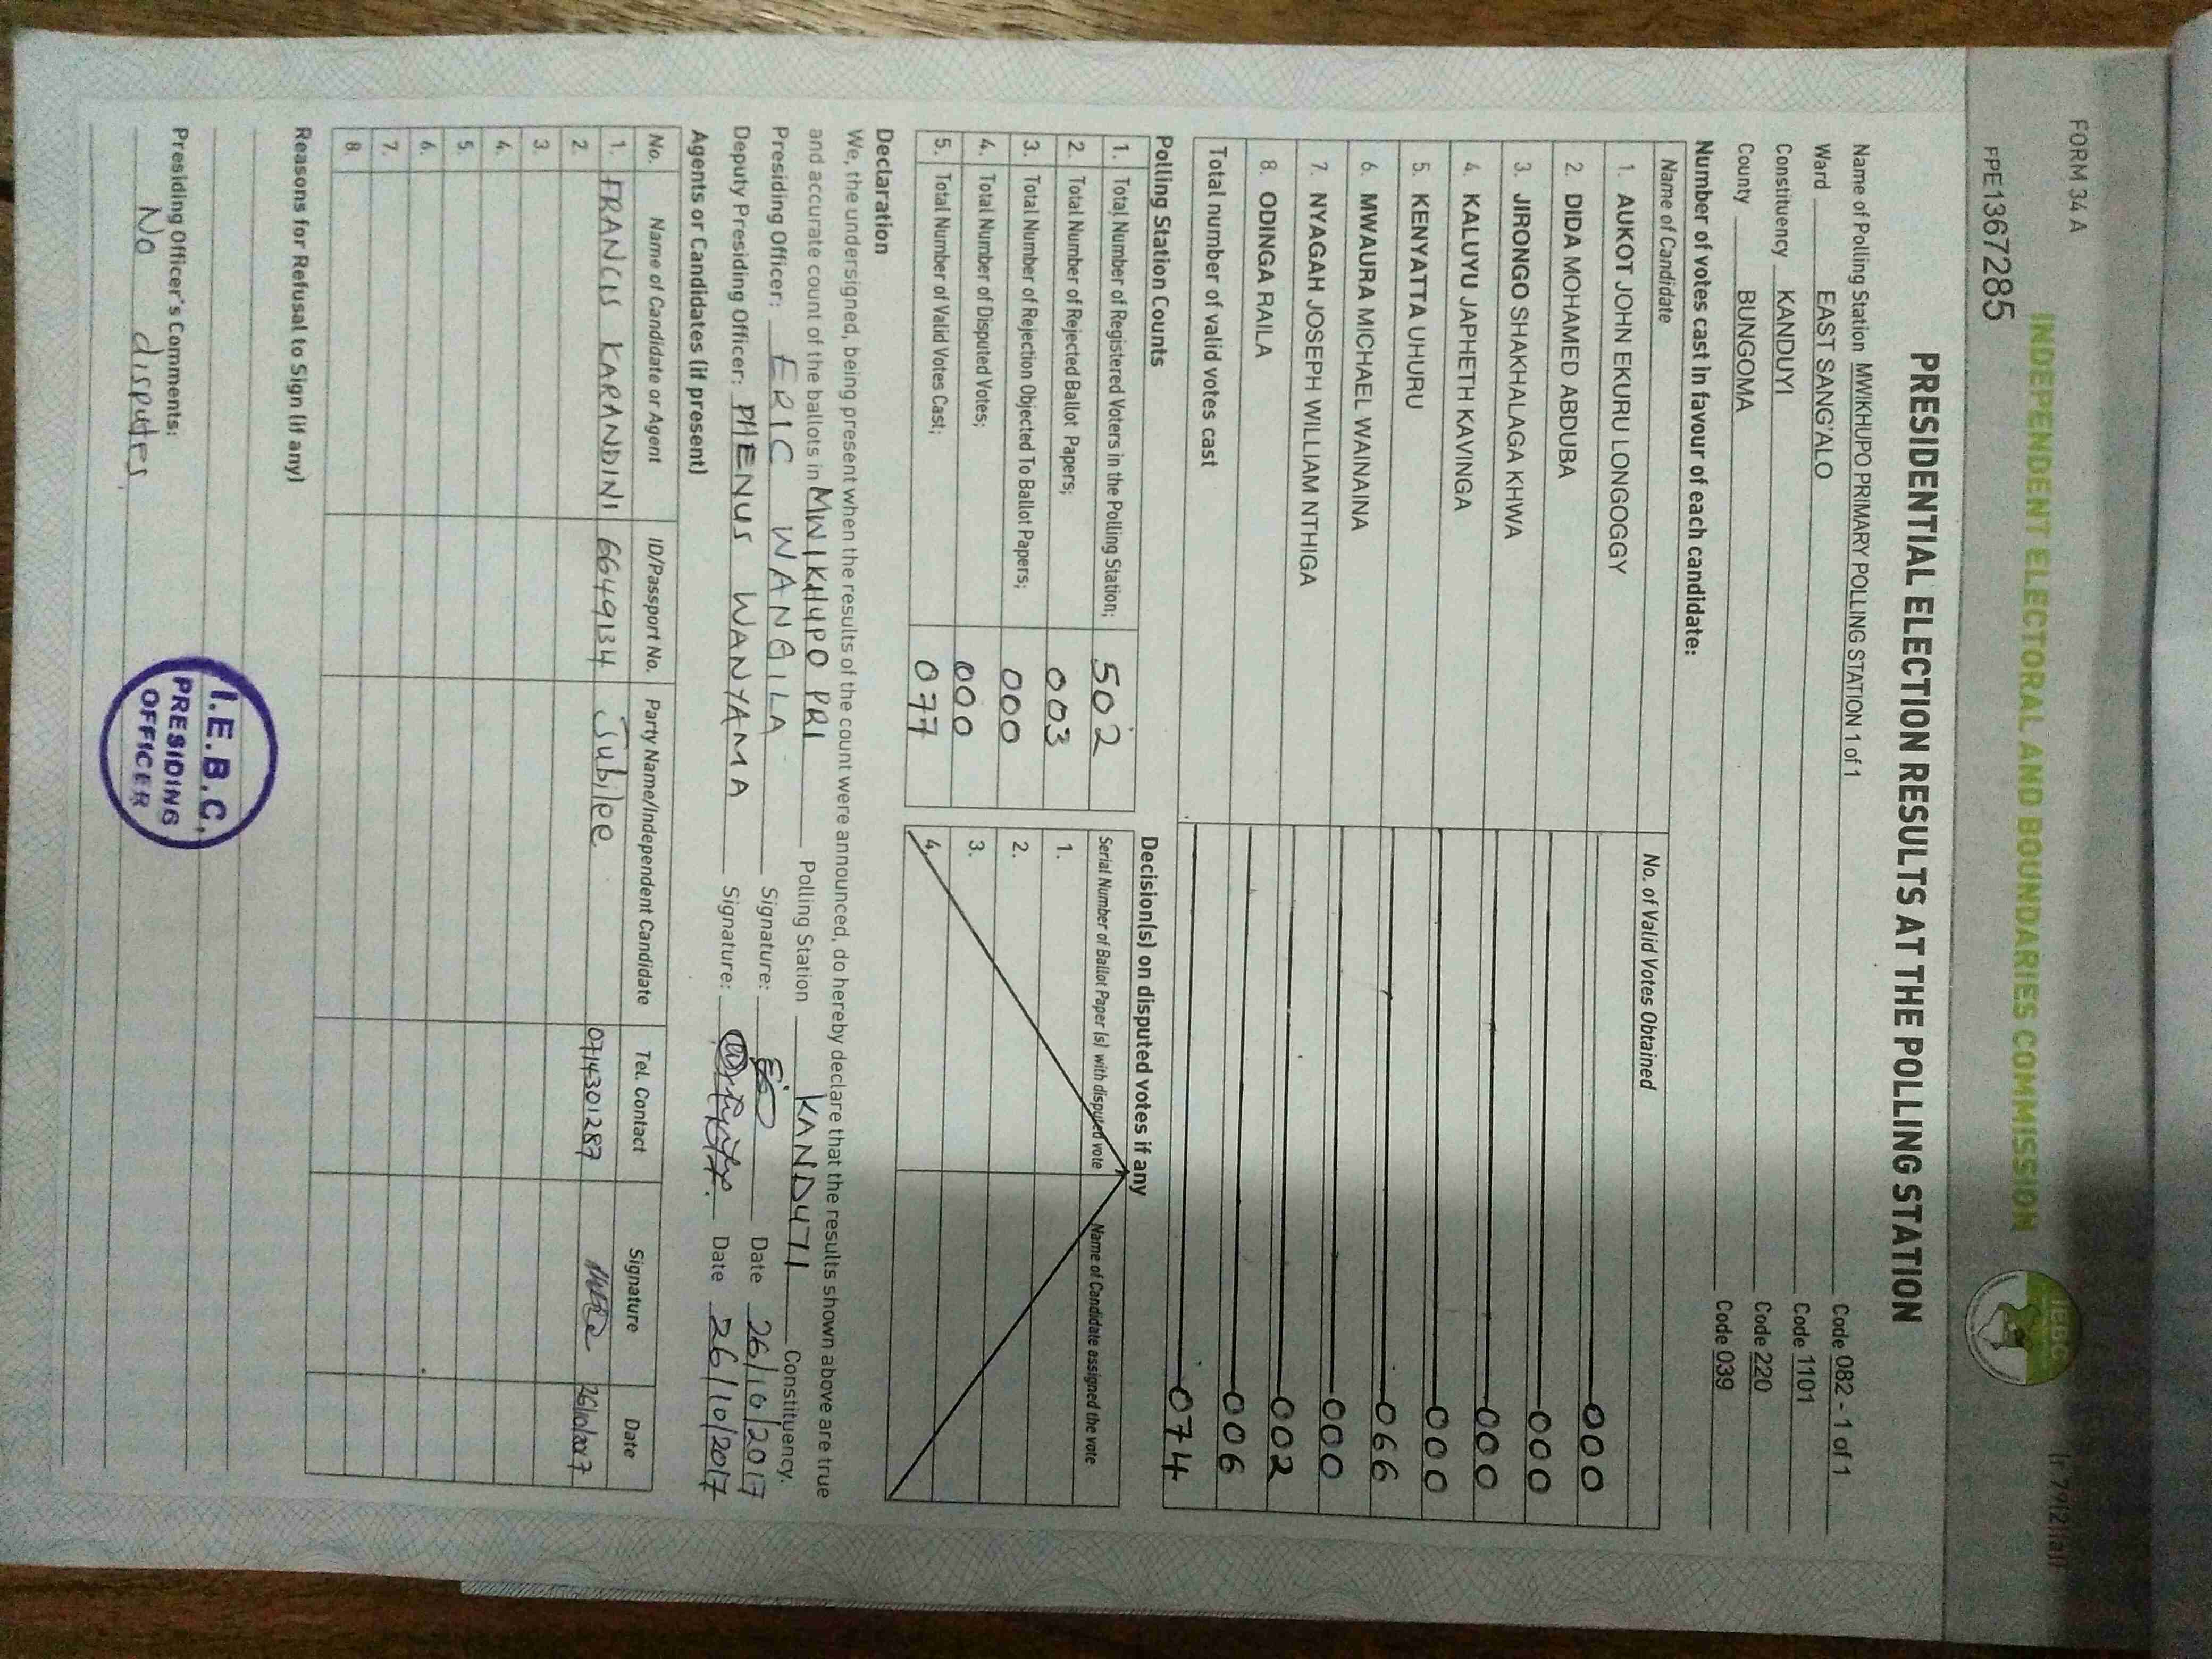 FORM 34 A
(r.79(2)(a))
INDEPENDENT ELECTORAL AND BOUNDARIES COMMISSION
IEBC
FPE1367285
PRESIDENTIAL ELECTION RESULTS AT THE POLLING STATION
Name of Polling Station MWIKHUPO PRIMARY POLLING STATION 1 of 1 Code 082 - 1 of 1
Ward EAST SANG'ALO Code 1101
Constituency KANDUYI Code 220
County BUNGOMA Code 039
Number of votes cast in favour of each candidate:
Name of Candidate No. of Valid Votes Obtained
1. AUKOT JOHN EKURU LONGOGGY 000
2. DIDA MOHAMED ABDUBA 000
3. JIRONGO SHAKHALAGA KHWA 000
4. KALUYU JAPHETH KAVINGA 000
5. KENYATTA UHURU 066
6. MWAURA MICHAEL WAINAINA 000
7. NYAGAH JOSEPH WILLIAM NTHIGA 002
8. ODINGA RAILA 006
Total number of valid votes cast 074
Polling Station Counts
1. Total Number of Registered Voters in the Polling Station; 502
2. Total Number of Rejected Ballot Papers; 003
3. Total Number of Rejection Objected To Ballot Papers; 000
4. Total Number of Disputed Votes; 000
5. Total Number of Valid Votes Cast; 077
Decision(s) on disputed votes if any
Serial Number of Ballot Paper (s) with disputed vote Name of Candidate assigned the vote
1.
2.
3.
4.
Declaration
We, the undersigned, being present when the results of the count were announced, do hereby declare that the results shown above are true
and accurate count of the ballots in MWIKHUPO PRI Polling Station KANDUYI Constituency.
Presiding Officer: ERIC WANGILA Signature: Date 26/10/2017
Deputy Presiding Officer: PHENUS WANYAMA Signature: Date 26/10/2017
Agents or Candidates (if present)
No. Name of Candidate or Agent ID/Passport No. Party Name/Independent Candidate Tel. Contact Signature Date
1. FRANCIS KARANDINI 6649134 Jubilee 0714301287 26/10/2017
2.
3.
4.
5.
6.
7.
8.
Reasons for Refusal to Sign (if any)
Presiding Officer's Comments:
No disputes
I.E.B.C.
PRESIDING
OFFICER